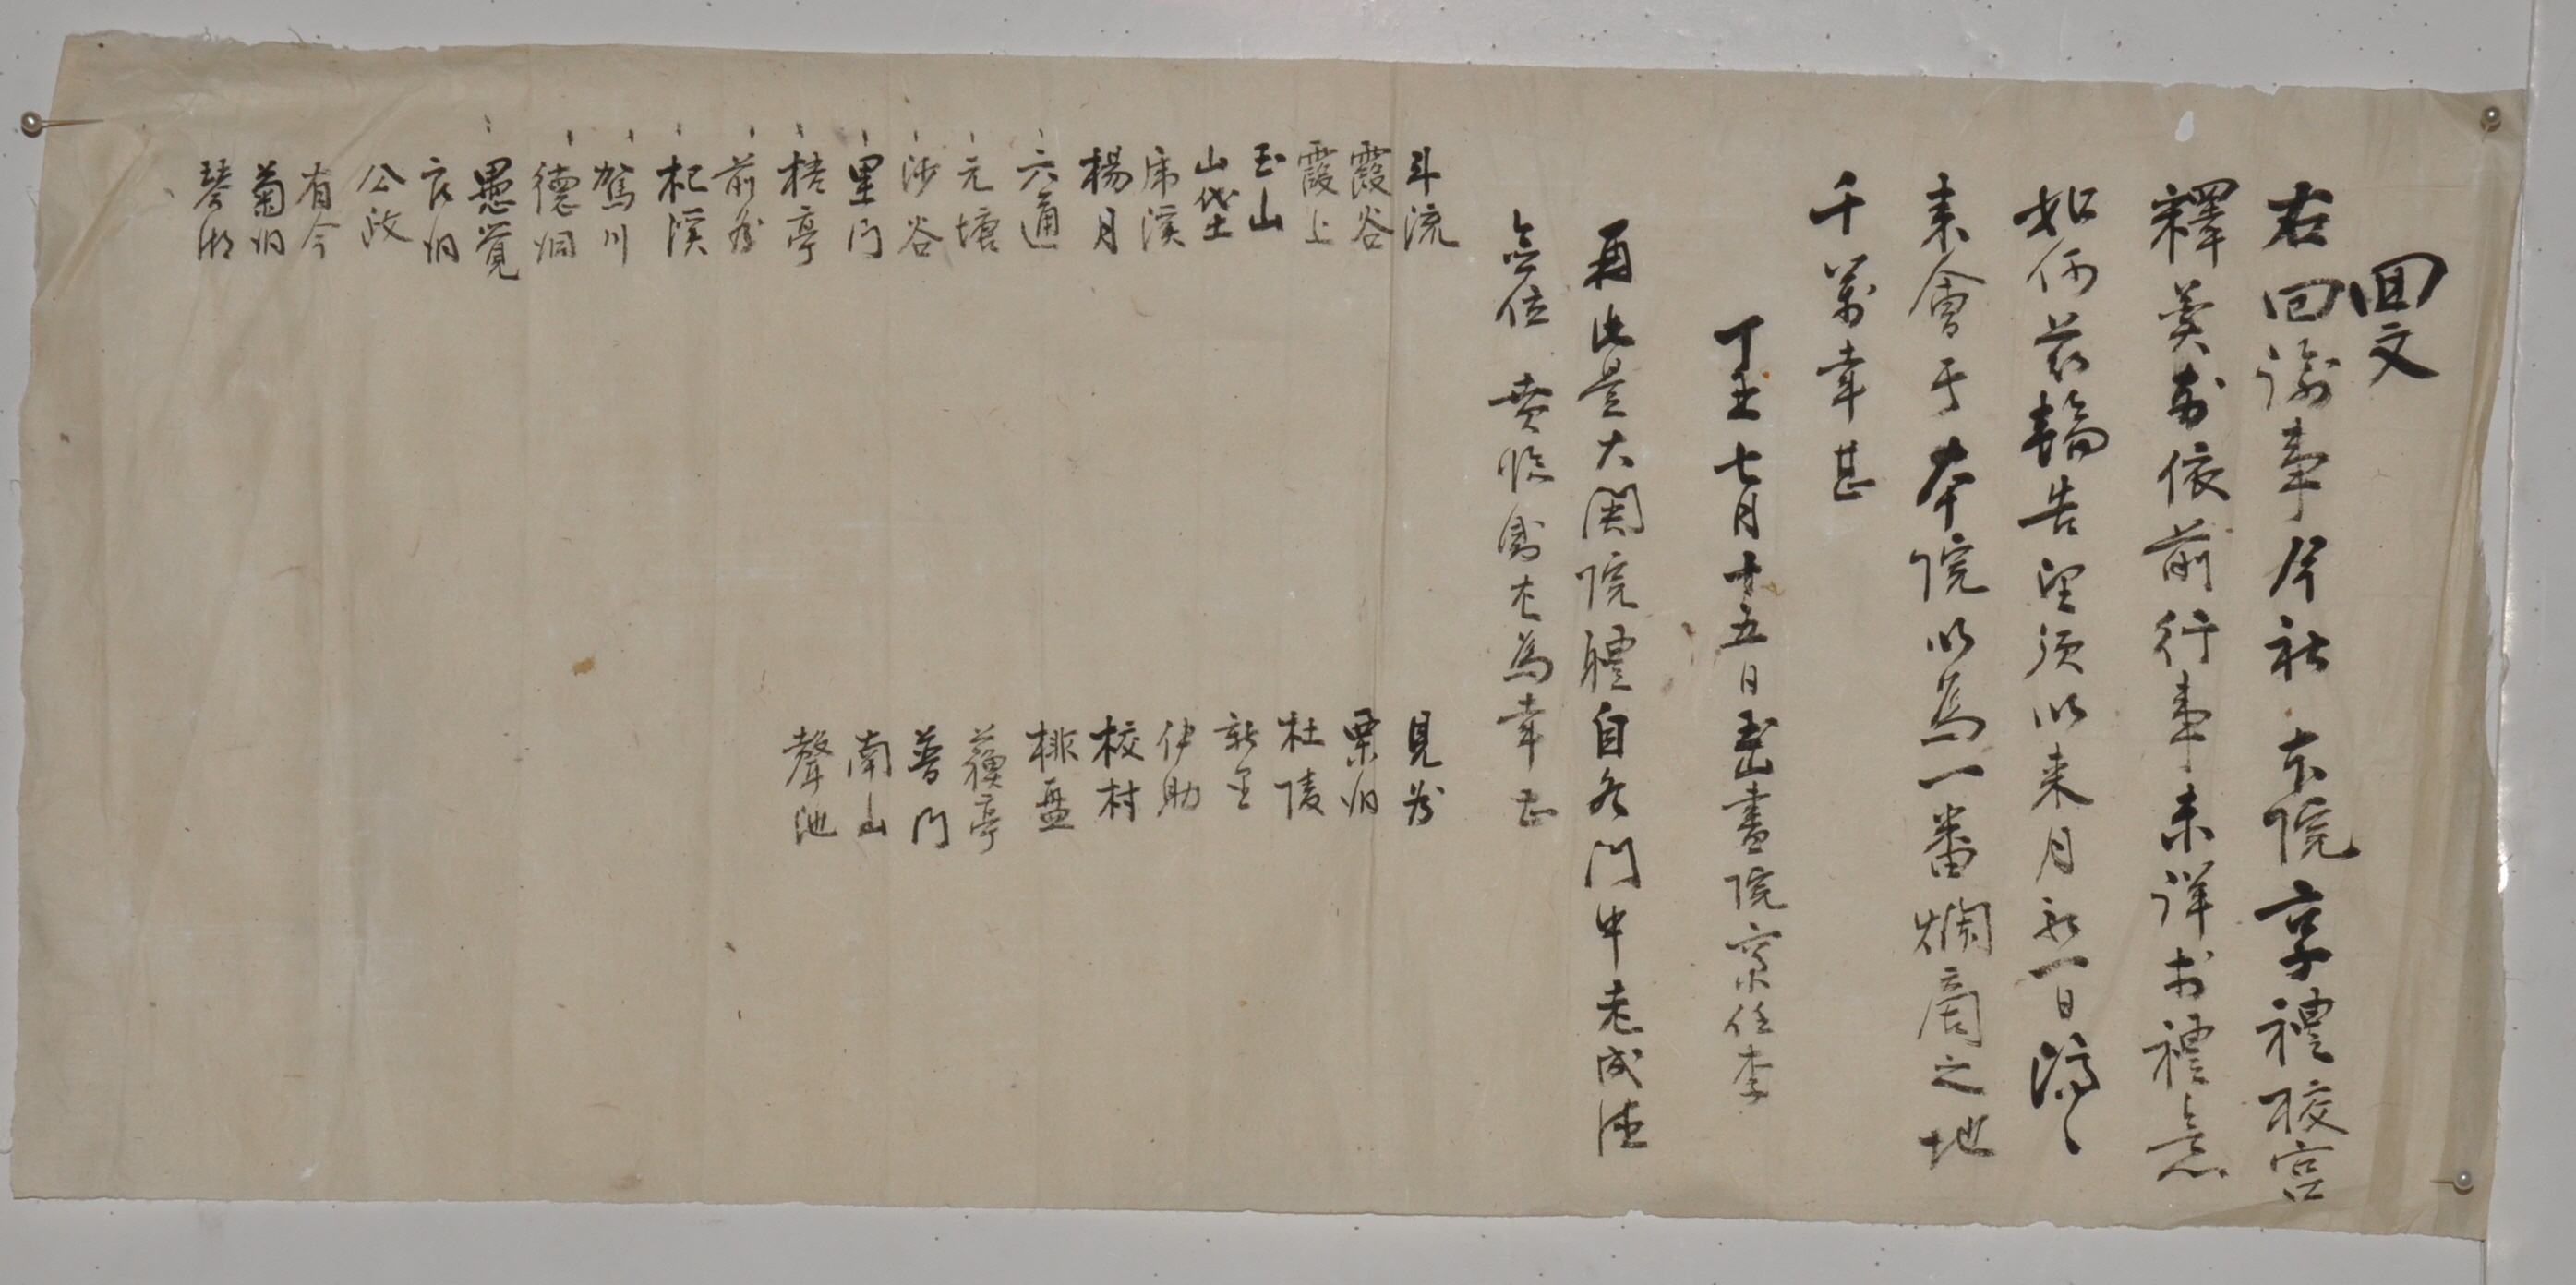 回文
右回諭事斥社本院享禮校宮
釋奠式依前行事未詳於禮意
如何玆輪告望須以來月初一日濟濟
來會于本院以爲一番爛商之地
千萬幸甚
丁丑七月十五日玉山書院齋任李
再此是大関院禮自各門中老成德
位賁臨
爲幸
斗流
霞谷
霞上
玉山
山垈
虎溪
楊月
六通
元塘
沙谷
里門
梧亭
前
杞溪
鴛川
德洞
愚覺
良洞
公政
有今
菊洞
琴湖
見谷
栗洞
杜陵
新里
伊助
校村
排盤
蘇亭
普門
南山
聲池